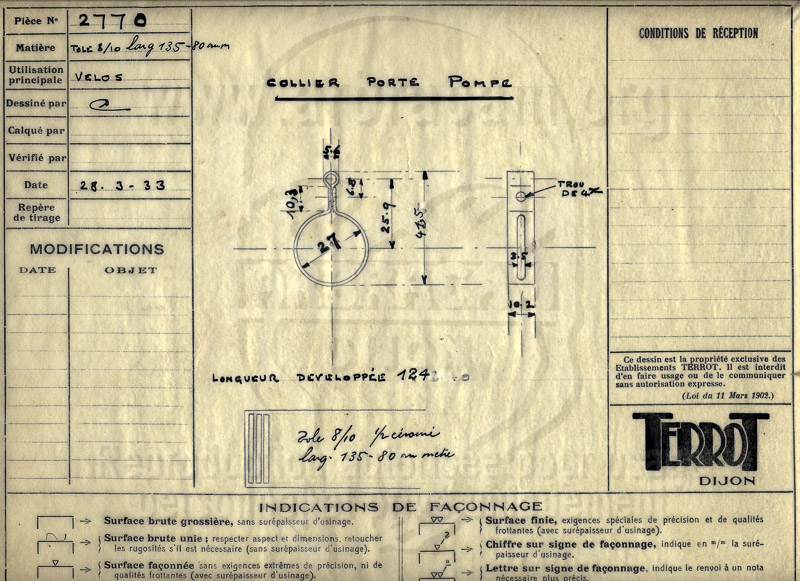 Pièce N° 2770
Matière TOLE 8/10 larg 135-80 mm
Utilisation principale VELOS
Dessiné par
Calqué par
Vérifié par
Date 28. 3 - 33
Repère de tirage
MODIFICATIONS
DATE OBJET
COLLIER PORTE POMPE
5.6
10,3
6.8
25.9
27
TROU
DE 4
3.5
10.2
LONGUEUR DEVELOPPÉE 124
Tole 8/10
larg. 135-80 au metre
CONDITIONS DE RÉCEPTION
Ce dessin est la propriété exclusive des
Etablissements TERROT. Il est interdit
d'en faire usage ou de le communiquer
sans autorisation expresse.
(Loi du 11 Mars 1902.)
TERROT
DIJON
INDICATIONS DE FAÇONNAGE
Surface brute grossière, sans surépaisseur d'usinage.
Surface brute unie ; respecter aspect et dimensions, retoucher
les rugosités s'il est nécessaire (sans surépaisseur d'usinage).
Surface façonnée sans exigences extrêmes de précision, ni de
qualités frottantes (avec surépaisseur d'usinage).
Surface finie, exigences spéciales de précision et de qualités
frottantes (avec surépaisseur d'usinage).
Chiffre sur signe de façonnage, indique en m/m la suré-
paisseur d'usinage.
Lettre sur signe de façonnage, indique le renvoi à un nota
nécessaire plus précis.